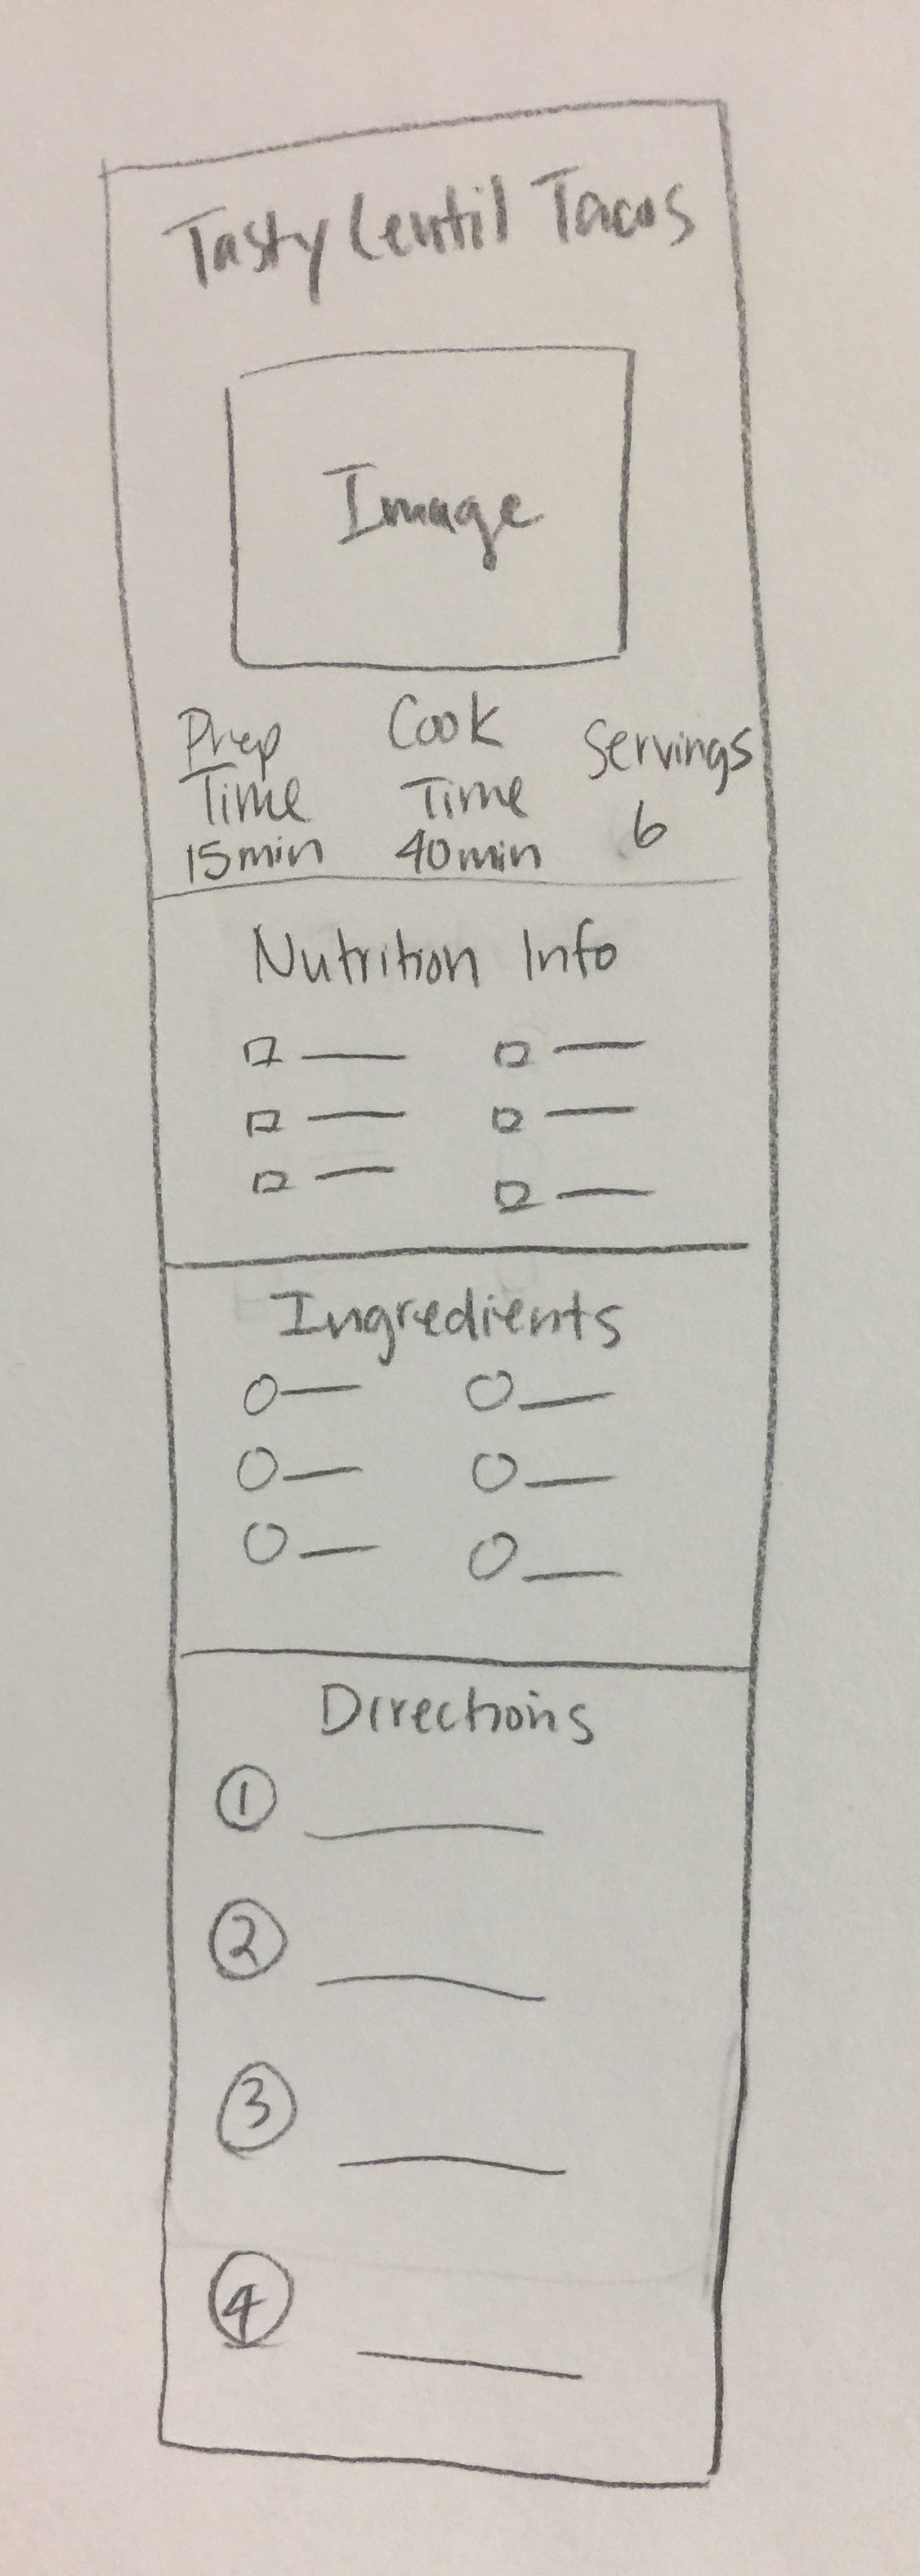 Tasty Lentil Tacos
Image
Prep Time 15min
Cook Time 40min
Servings 6
Nutrition Info
Ingredients
Directions
1
2
3
4